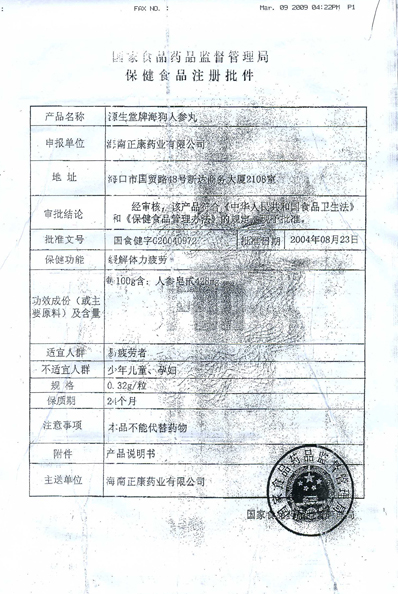 FAX NO. :
Mar. 09 2009 04:22PM P1
国家食品药品监督管理局
保健食品注册批件
产品名称 源生堂牌海狗人参丸
申报单位 海南正康药业有限公司
地址 海口市国贸路48号新达商务大厦2108室
审批结论 经审核，该产品符合《中华人民共和国食品卫生法》
和《保健食品管理办法》的规定，现予批准。
批准文号 国食健字G20040972 批准日期 2004年08月23日
保健功能 缓解体力疲劳
功效成份（或主
要原料）及含量
每100g含：人参皂甙428m
适宜人群 易疲劳者
不适宜人群 少年儿童、孕妇
规格 0.32g/粒
保质期 24个月
注意事项 本品不能代替药物
附件 产品说明书
主送单位 海南正康药业有限公司
国家食品药品监督管理局